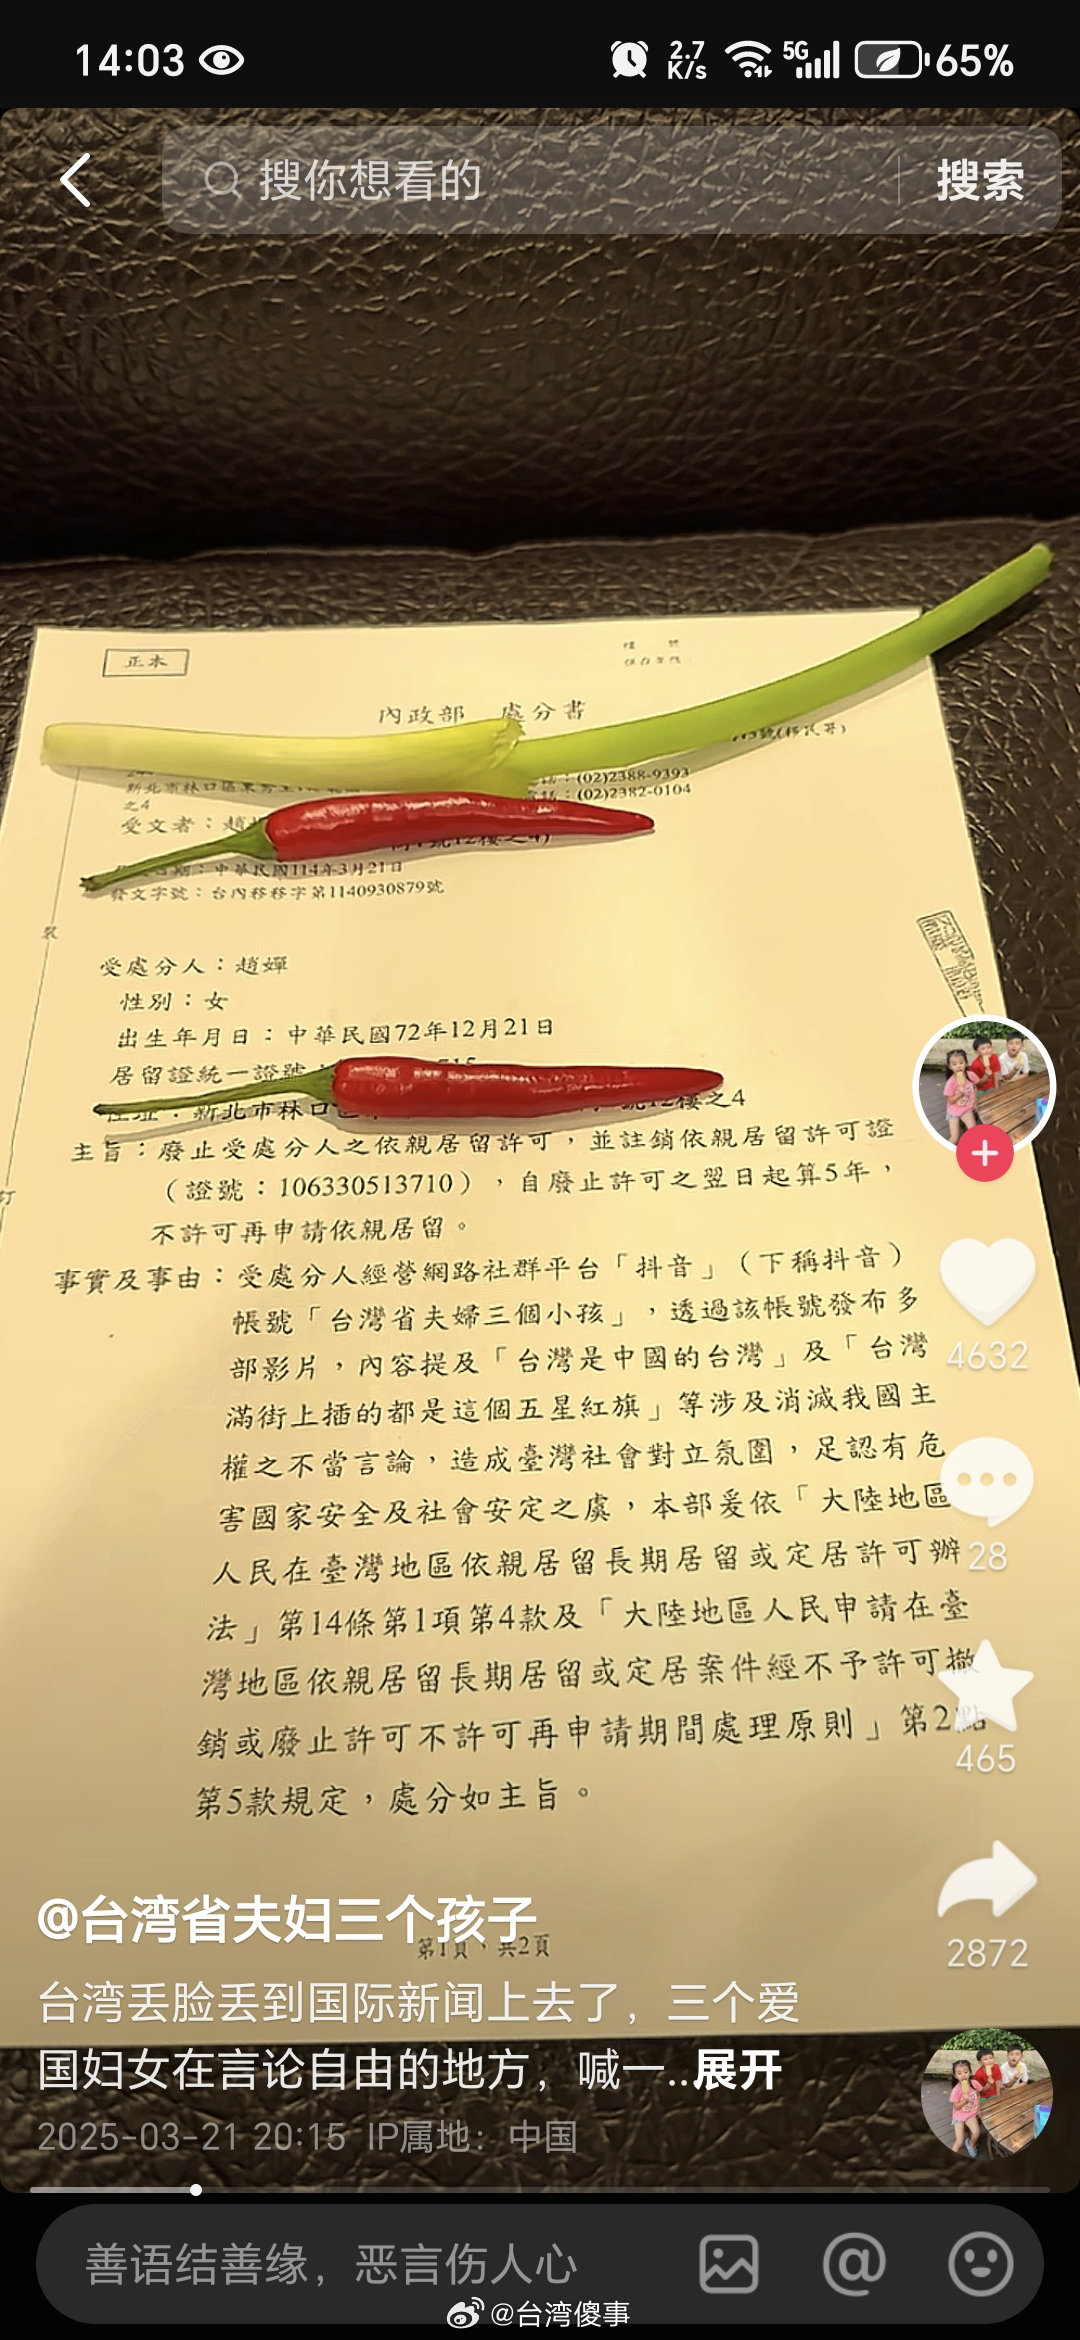 14:03
2.7 K/s
5G
65%
搜你想看的
搜索
正本
內政部 處分書
(移民署)
(02)2388-9393
(02)2382-0104
之4
受文者：趙
號12樓之4)
日期：中華民國114年3月21日
發文字號：台內移移字第1140930879號
裝
受處分人：趙嬋
性別：女
出生年月日：中華民國72年12月21日
居留證統一證號
住址：新北市林口區 號12樓之4
主旨：廢止受處分人之依親居留許可，並註銷依親居留許可證
（證號：106330513710），自廢止許可之翌日起算5年，
訂
不許可再申請依親居留。
事實及事由：受處分人經營網路社群平台「抖音」（下稱抖音）
帳號「台灣省夫婦三個小孩」，透過該帳號發布多
部影片，內容提及「台灣是中國的台灣」及「台灣
滿街上插的都是這個五星紅旗」等涉及消滅我國主
權之不當言論，造成臺灣社會對立氛圍，足認有危
害國家安全及社會安定之虞，本部爰依「大陸地區
人民在臺灣地區依親居留長期居留或定居許可辦
法」第14條第1項第4款及「大陸地區人民申請在臺
灣地區依親居留長期居留或定居案件經不予許可撤
銷或廢止許可不許可再申請期間處理原則」第2點
第5款規定，處分如主旨。
4632
28
465
2872
@台湾省夫妇三个孩子
第1頁，共2頁
台湾丢脸丢到国际新闻上去了，三个爱
国妇女在言论自由的地方，喊一..展开
2025-03-21 20:15 IP属地：中国
善语结善缘，恶言伤人心
@台湾傻事